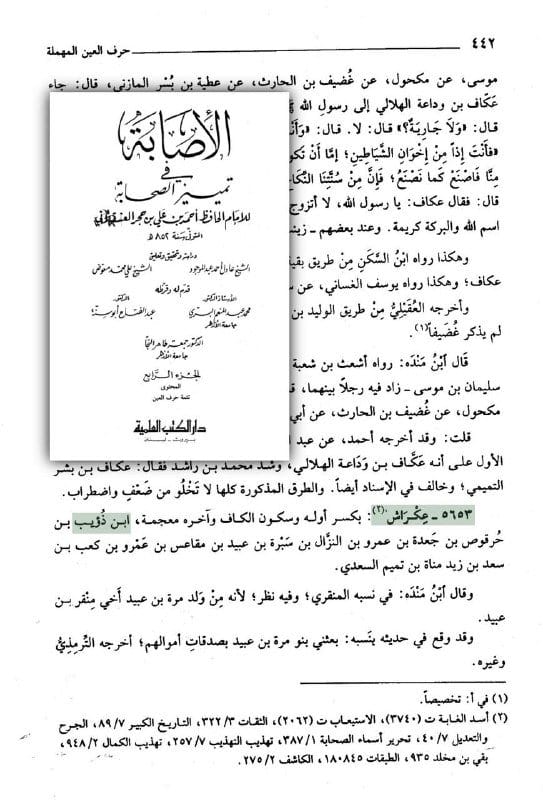 ٤٤٢
حرف العين المهملة
موسى، عن مكحول، عن غُضيف بن الحارث، عن عطية بن بُسْر المازني، قال: جاء
عَكّاف بن وداعة الهلالي إلى رسولِ الله
قال: «وَلاَ جَارِيَةٌ؟» قال: لا. قال: «وَأَنْتَ
«فَأَنْتَ إِذَاً مِنْ إِخْوَانِ الشَّيَاطِينِ؛ إِمَّا أَنْ تَكُو
مِنَّا فَاصْنَعْ كَمَا نَصْنَعُ؛ فَإِنَّ مِنْ سُنَّتِنَا النِّكَا
قال: فقال عكاف: يا رسول الله، لا أتزوج
اسم الله والبركة كريمة. وعند بعضهم ـ زين
وهكذا رواه ابْنُ السَّكَنِ مِنْ طريق بقية
عكاف؛ وهكذا رواه يوسف الغساني، عن س
وأخرجه العُقَيْلِيُّ مِنْ طريق الوليد بن
لم يذكر غُضَيفاً(١).
قَال أَبْنُ مَنْدَه: رواه أشعث بن شعبة
سليمان بن موسى ـ زاد فيه رجلاً بينهما، ق
مكحول، عن غُضيف بن الحارث، عن أبي
قلت: وقد أخرجه أحمد، عن عبد ال
الأول على أنه عَكَّاف بن وَدَاعة الهلالي، وشذ محمد بن راشد فقال: عكاف بن بشر
التميمي؛ وخالف في الإسناد أيضاً. والطرق المذكورة كلها لا تَخْلُو من ضَعْفٍ واضطراب.
٥٦٥٣ ـ عِكْرَاش(٢): بكسر أوله وسكون الكاف وآخره معجمة، ابن ذُؤَيب بن
حُرقوص بن جَعدة بن عمرو بن النزَّال بن سَبْرة بن عبيد بن مقاعس بن عَمْرو بن كعب بن
سعد بن زيد مناة بن تميم السعدي.
وقال أَبْنُ مَنْدَه: في نسبه المنقري؛ وفيه نظر؛ لأنه مِنْ وَلد مرة بن عبيد أَخي مِنْقر بن
عبيد.
وقد وقع في حديثه ينسبه: بعثني بنو مرة بن عبيد بصدقاتِ أموالهم؛ أخرجه التِّرمِذِيُّ
وغيره.
(١) في أ: تخصيصاً.
(٢) أسد الغابة ت (٣٧٤٠)، الاستيعاب ت (٢٠٦٢)، الثقات ٣٢٢/٣، التاريخ الكبير ٨٩/٧، الجرح
والتعديل ٤٠/٧، تحرير أسماء الصحابة ٣٨٧/١، تهذيب التهذيب ٢٥٧/٧، تهذيب الكمال ٩٤٨/٢،
بقي بن مخلد ٩٣٥، الطبقات ١٨٠٨٤٥، الكاشف ٢٧٥/٢.
الإصابة
في
تمييز الصحابة
للإمام الحافظ أحمد بن علي بن حجر العسقلاني
المتوفى سنة ٨٥٢ هـ
دراسة وتحقيق وتعليق
الشيخ عادل أحمد عبد الموجود الشيخ علي محمد معوض
قدم له وقرظه
الأستاذ الدكتور الدكتور
محمد عبد المنعم البري عبد الفتاح أبو سنة
جامعة الأزهر
الدكتور جمعة طاهر النجار
جامعة الأزهر
الجزء الرابع
المحتوى
تتمة حرف العين
دار الكتب العلمية
بيروت ـ لبنان